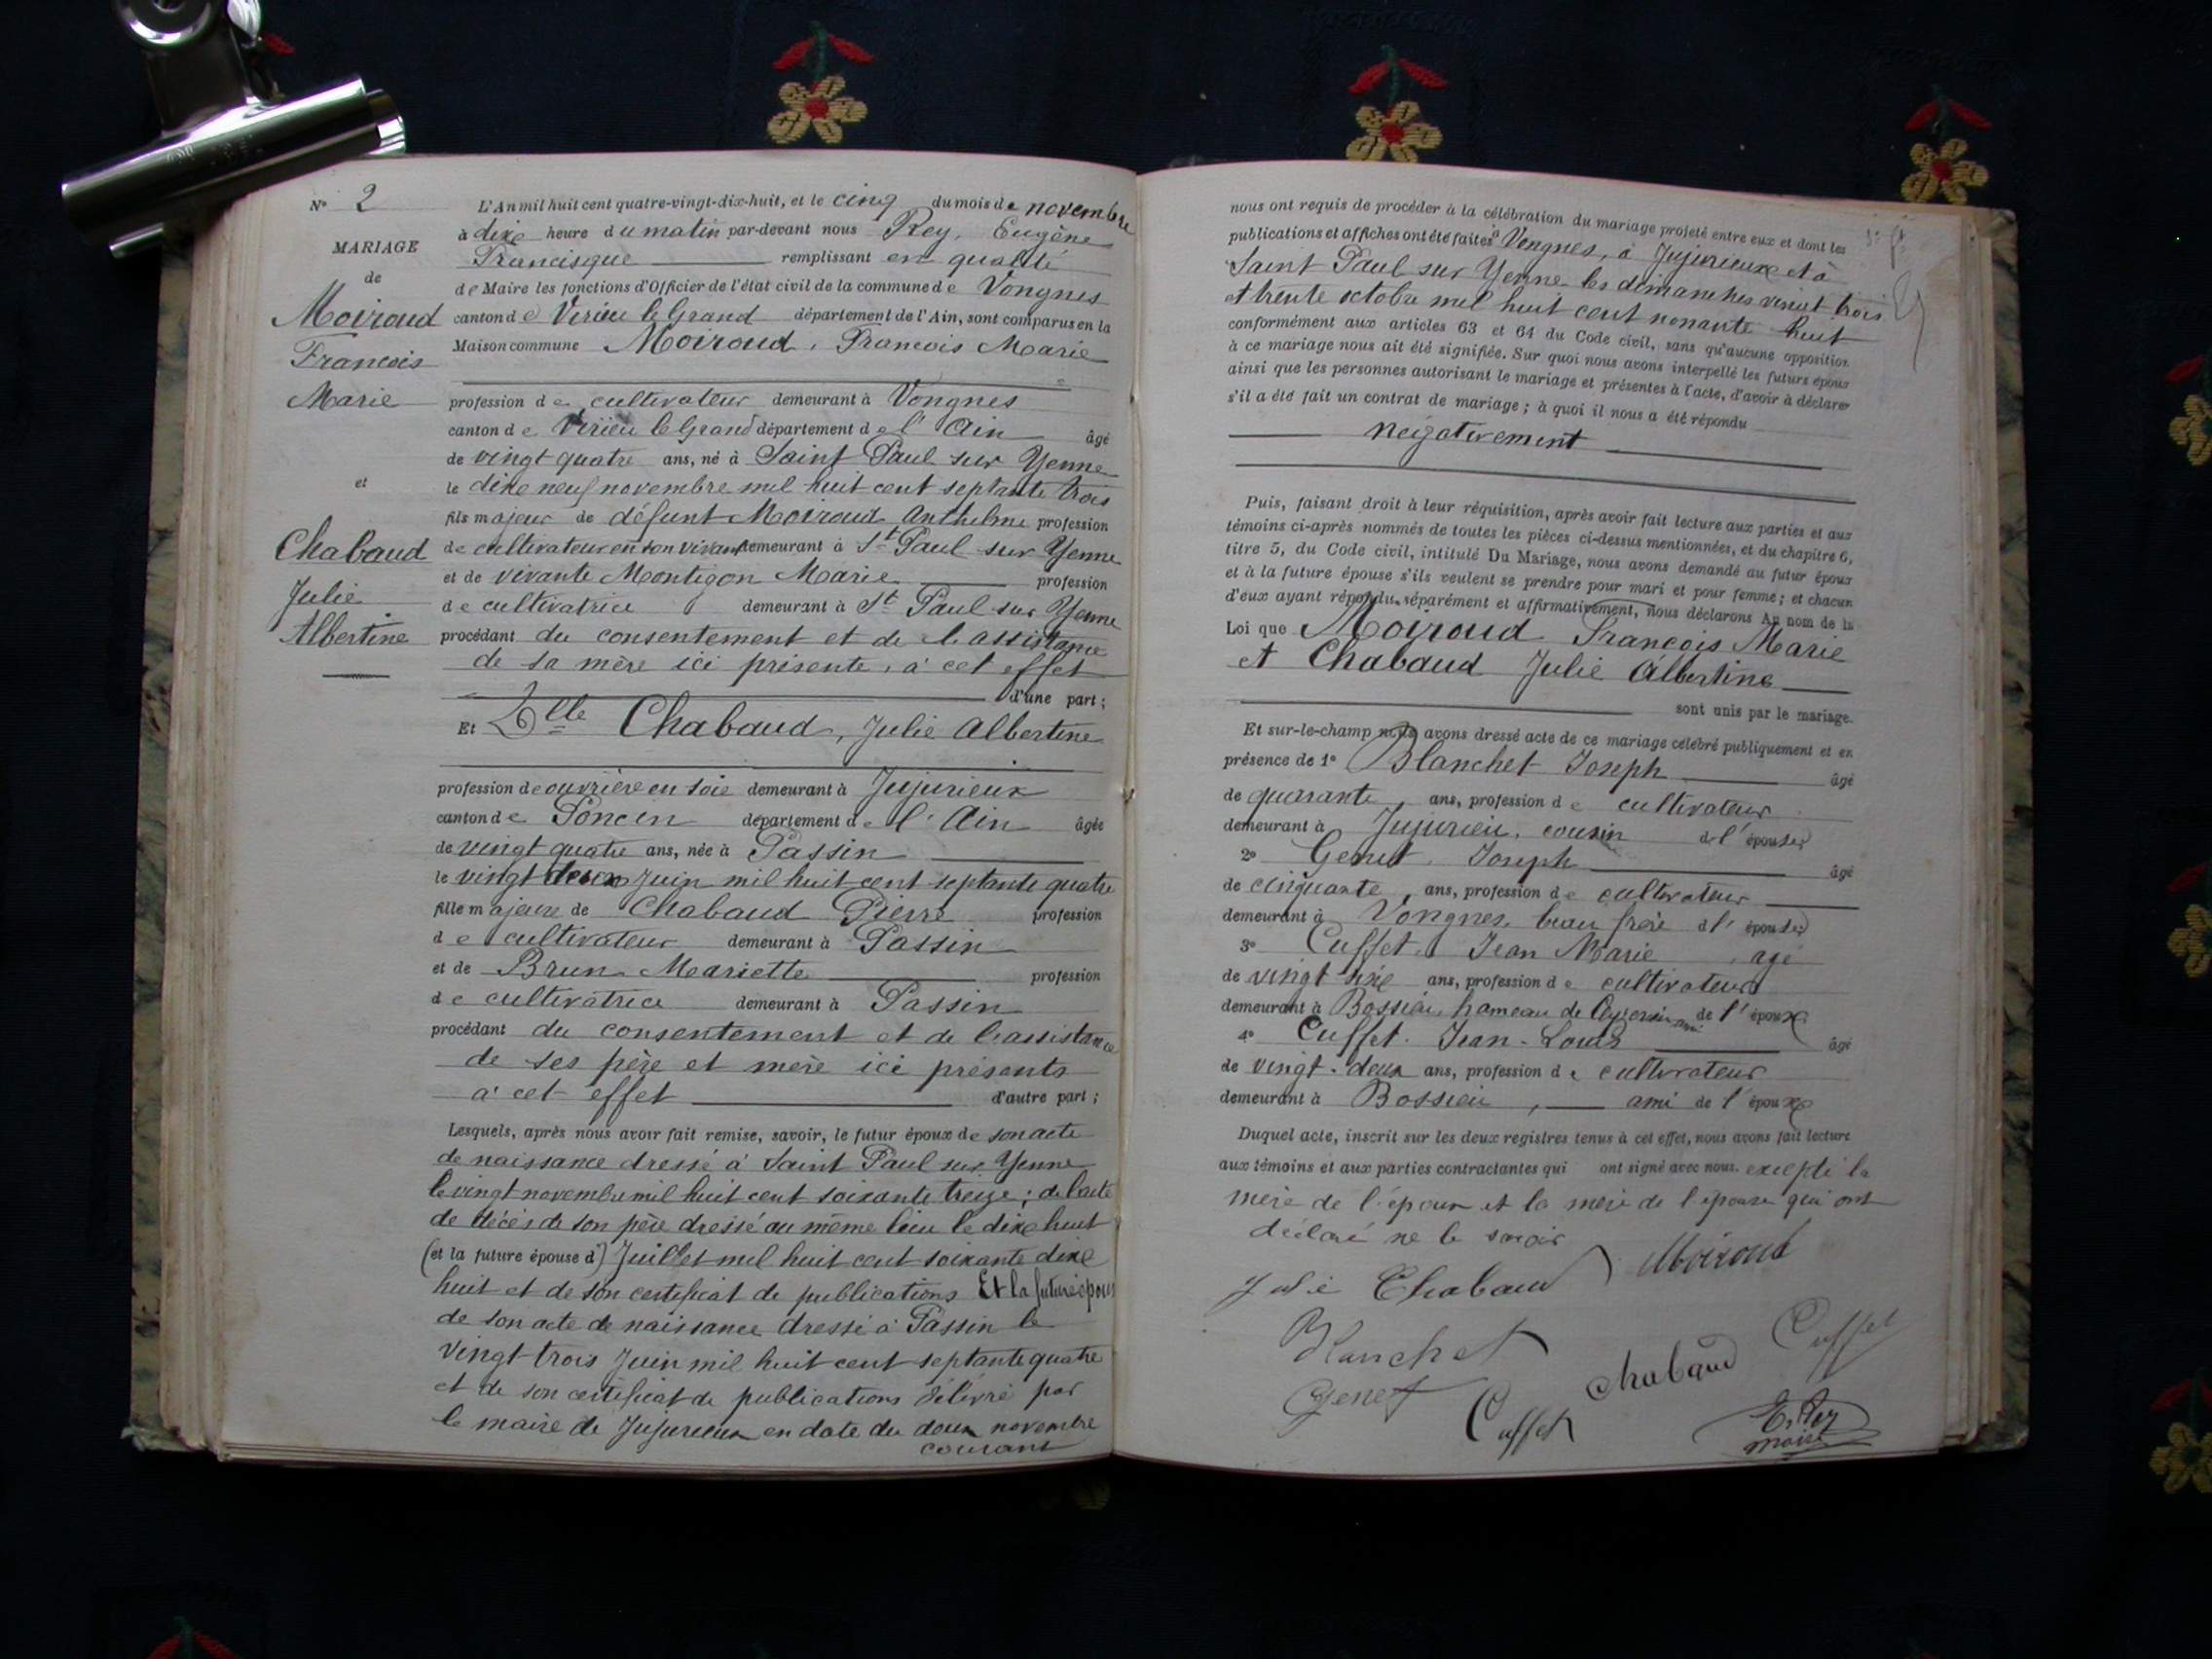 N° 2
MARIAGE
de
Moiroud
François
Marie
et
Chabaud
Julie
Albertine
L'An mil huit cent quatre-vingt-dix-huit, et le cinq du mois de novembre
à dixe heure du matin par-devant nous Rey, Eugène
Francisque remplissant en qualité
de Maire les fonctions d'Officier de l'état civil de la commune de Vongnes
canton de Virieu le Grand département de l'Ain, sont comparus en la
Maison commune Moiroud, Francois Marie
profession de cultivateur demeurant à Vongnes
canton de Virieu le Grand département de l'Ain âgé
de vingt quatre ans, né à Saint Paul sur Yenne
le dixe neuf novembre mil huit cent septante trois
fils majeur de défunt Moiroud Anthelme profession
de cultivateur en son vivant demeurant à St Paul sur Yenne
et de vivante Montigon Marie profession
de cultivatrice demeurant à St Paul sur Yenne
procédant du consentement et de l'assistance
de sa mère ici présente, à cet effet
d'une part ;
Et Dlle Chabaud, Julie Albertine
profession de ouvrière en soie demeurant à Jujurieux
canton de Poncin département de l'Ain âgée
de vingt quatre ans, née à Passin
le vingt deux Juin mil huit cent septante quatre
fille majeure de Chabaud Pierre profession
de cultivateur demeurant à Passin
et de Brun Mariette profession
de cultivatrice demeurant à Passin
procédant du consentement et de l'assistance
de ses père et mère ici présents
à cet effet d'autre part ;
Lesquels, après nous avoir fait remise, savoir, le futur époux de son acte
de naissance dressé à Saint Paul sur Yenne
le vingt novembre mil huit cent soixante treize ; de l'acte
de décès de son père dressé au même lieu le dixe huit
(et la future épouse d) Juillet mil huit cent soixante dixe
huit et de son certificat de publications Et la future épous
de son acte de naissance dressé à Passin le
vingt trois Juin mil huit cent septante quatre
et de son certificat de publications délivré par
le maire de Jujurieux en date du deux novembre
courant
nous ont requis de procéder à la célébration du mariage projeté entre eux et dont les
publications et affiches ont été faites à Vongnes, à Jujurieux et à
Saint Paul sur Yenne les dimanches vingt trois
et trente octobre mil huit cent nonante huit
conformément aux articles 63 et 64 du Code civil, sans qu'aucune opposition
à ce mariage nous ait été signifiée. Sur quoi nous avons interpellé les futurs époux
ainsi que les personnes autorisant le mariage et présentes à l'acte, d'avoir à déclarer
s'il a été fait un contrat de mariage ; à quoi il nous a été répondu
négativement
Puis, faisant droit à leur réquisition, après avoir fait lecture aux parties et aux
témoins ci-après nommés de toutes les pièces ci-dessus mentionnées, et du chapitre 6,
titre 5, du Code civil, intitulé Du Mariage, nous avons demandé au futur époux
et à la future épouse s'ils veulent se prendre pour mari et pour femme ; et chacun
d'eux ayant répondu séparément et affirmativement, nous déclarons Au nom de la
Loi que Moiroud François Marie
et Chabaud Julie Albertine
sont unis par le mariage.
Et sur-le-champ nous avons dressé acte de ce mariage célébré publiquement et en
présence de 1° Blanchet Joseph âgé
de quarante ans, profession de cultivateur
demeurant à Jujurieu, cousin de l'épouse
2° Genet Joseph âgé
de cinquante ans, profession de cultivateur
demeurant à Vongnes, beau frère de l'épouse
3° Cuffet Jean Marie agé
de vingt ans, profession de cultivateur
demeurant à Bossieu, hameau de ami de l'époux
4° Cuffet Jean-Louis âgé
de vingt-deux ans, profession de cultivateur
demeurant à Bossieu, ami de l'époux
Duquel acte, inscrit sur les deux registres tenus à cet effet, nous avons fait lecture
aux témoins et aux parties contractantes qui ont signé avec nous. excepté la
mère de l'époux et la mère de l'épouse qui ont
déclaré ne le savoir
Julie Chabaud Moiroud
Blanchet Cuffet
Chabaud
Genet
Cuffet
E. Rey
maire